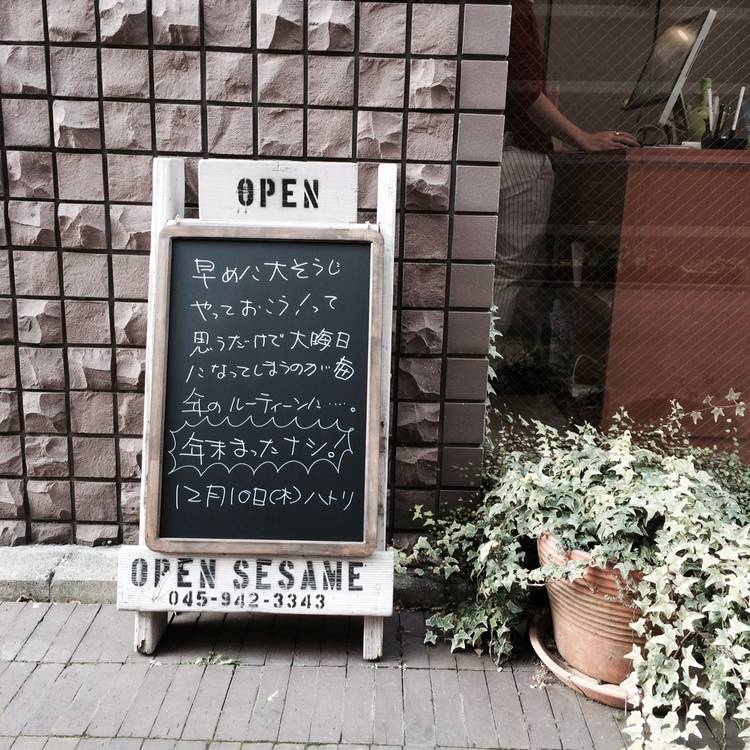 OPEN
早めに大そうじ
やっておこう！って
思うだけで大晦日
になってしまうのが毎
年のルーティーンに……。
年末まったナシ！
12月10日(木)ハトリ
OPEN SESAME
045-942-3343